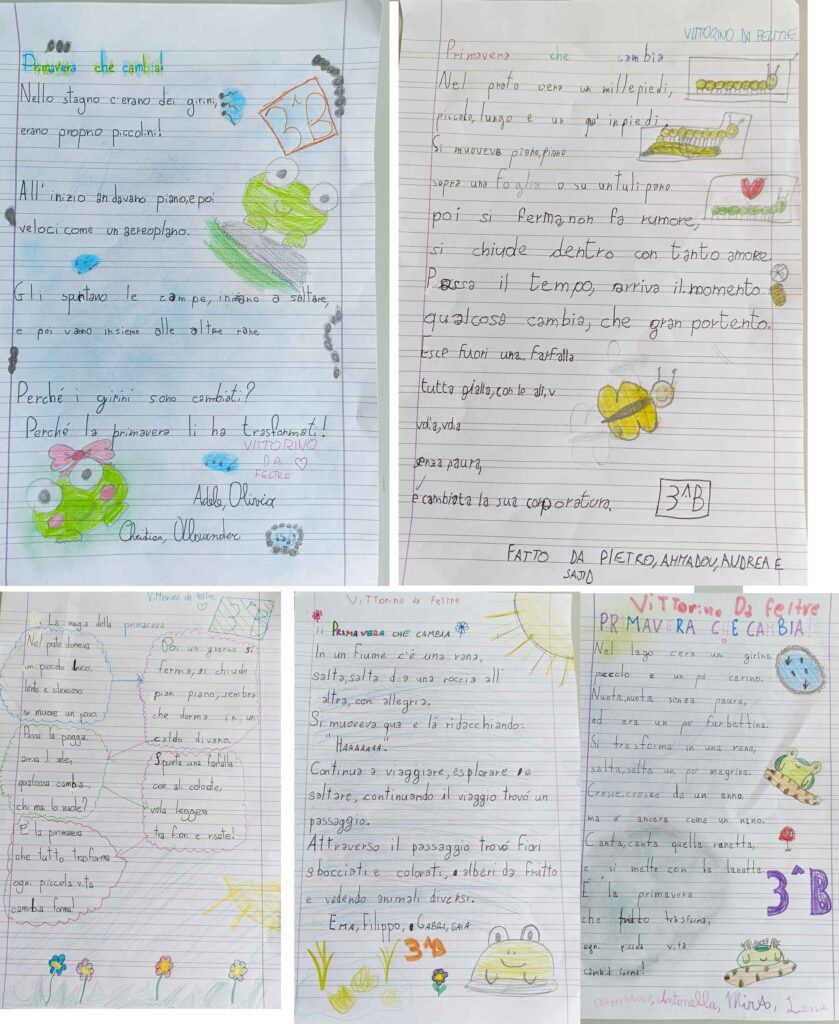 Primavera che cambia!
Nello stagno c'erano dei girini,
erano proprio piccolini!
3^B
All'inizio andavano piano, e poi
veloci come un aereoplano.
Gli spuntavo le zampe, iniziano a saltare,
e poi vano insieme alle altre rane
Perché i girini sono cambiati?
Perché la primavera li ha trasformati!
VITTORINO
DA
FELTRE
Adele, Olivia
Christian, Alexander
VITTORINO DA FELTRE
Primavera che cambia
Nel prato cera un millepiedi,
piccolo, lungo e un po' inpiedi.
Si muoveva piano, piano
sopra una foglia o su un tulipano
poi si ferma, non fa rumore,
si chiude dentro con tanto amore.
Passa il tempo, arriva il momento
qualcosa cambia, che gran portento.
Esce fuori una farfalla
tutta gialla, con le ali, v
vola, vola
senza paura,
è cambiata la sua corporatura.
3^B
FATTO DA PIETRO, AHMADOU, AUDREA E
SAJID
Vittorino da feltre
3^B
La magia della primavera
Nel prato dormiva
un piccolo bruco,
lento e silenzioso
si muove un poco.
Poi un giorno si
ferma, si chiude
pian piano, sembra
che dorma in un
caldo divano.
Passa la pioggia
arriva il sole,
qualcosa cambia...
chi mai lo vuole?
Spunta una farfalla
con ali colorate,
vola leggera
tra fiori e risate!
E' la primavera
che tutto trasforma
ogni piccola vita
cambia forma!
Vittorino da Feltre
PRIMAVERA CHE CAMBIA
In un fiume c'è una rana,
salta, salta da una roccia all'
altra, con allegria.
Si muoveva qua e là ridacchiando:
"Haaaaaaa".
Continua a viaggiare, esplorare e
saltare, continuando il viaggio trovò un
passaggio.
Attraverso il passaggio trovò fiori
sbocciati e colorati, alberi da frutto
e vedendo animali diversi.
EMA, Filippo, GABRI, GAIA
3^B
Vittorino Da Feltre
PRIMAVERA CHE CAMBIA
Nel lago c'era un girino,
piccolo e un pò carino.
Nuota, nuota senza paura,
ed era un po' furbettina.
Si trasforma in una rana,
salta, salta un po' magrina.
Cresce, cresce da un anno
ma è ancora come un nano.
Canta, canta quella ranetta,
e si mette con la
È la primavera
che tutto trasforma,
ogni piccola vita
cambia forma!
3^B
Antonella, Mirta,